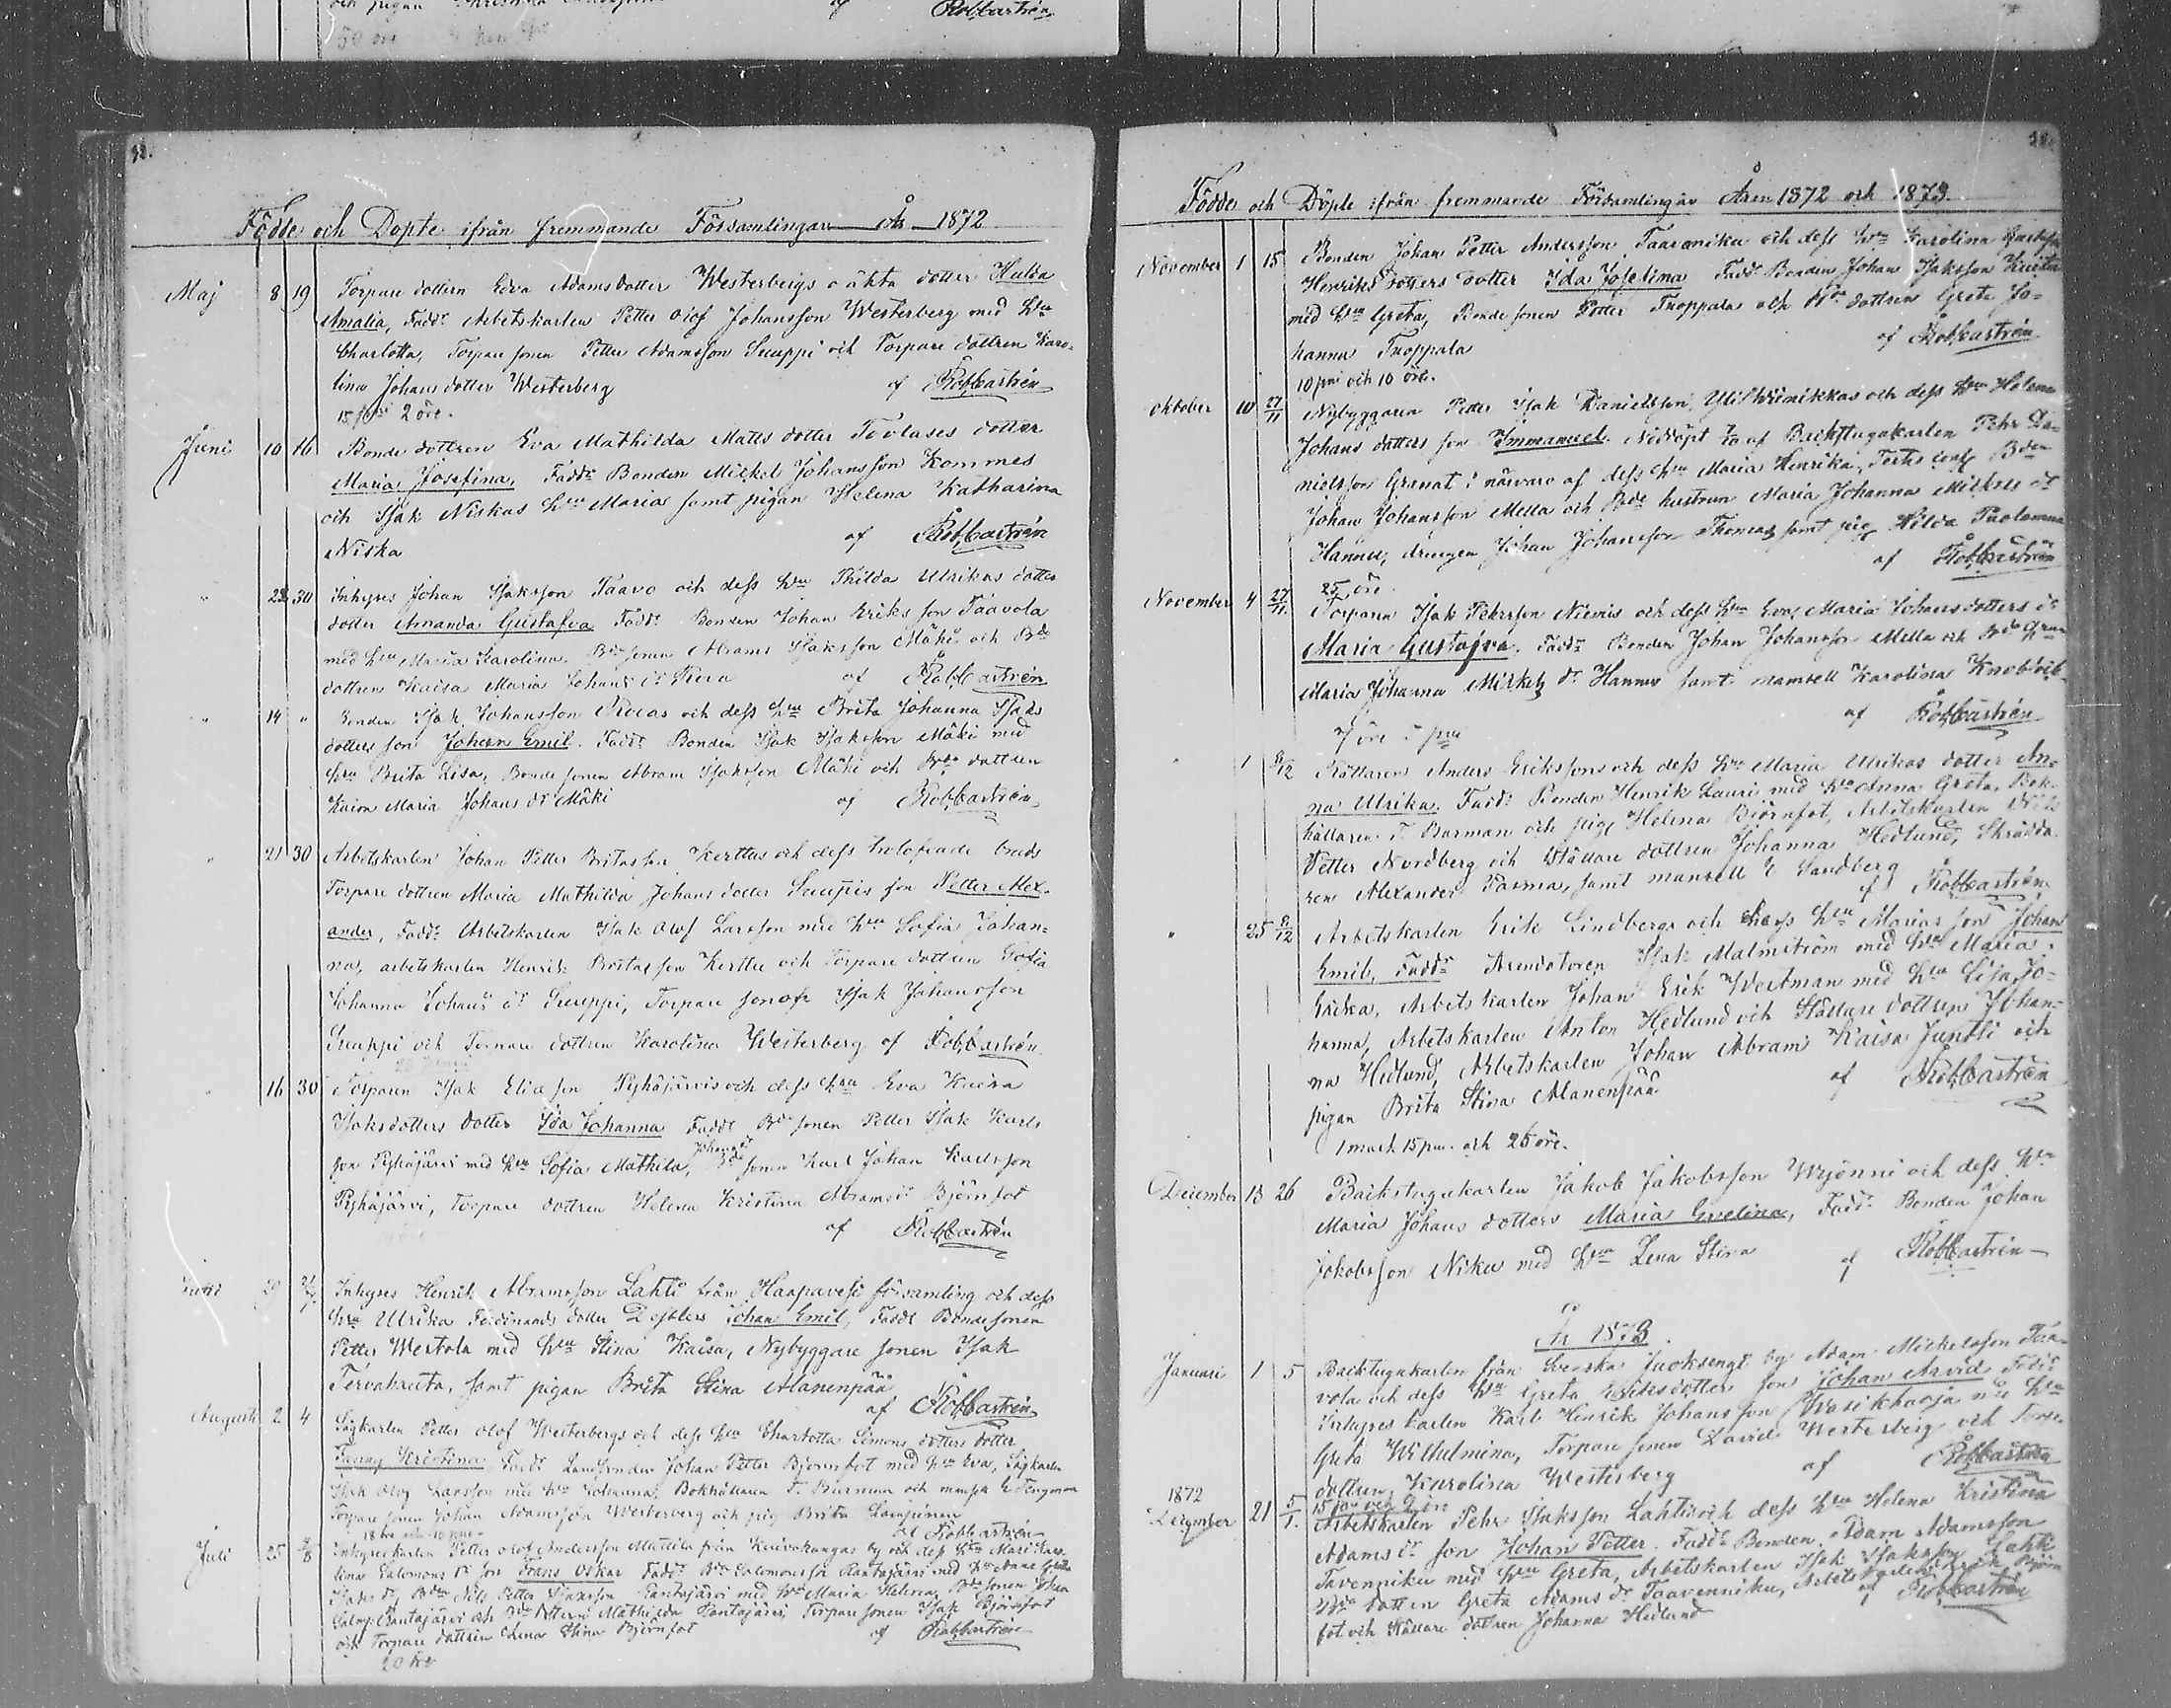 och pigan
af Rob. Castrén
50 öre
Födde och Döpte ifrån fremmande Församlingar År 1872
Maj 8 19 Torpare dottern Edva Adamsdotter Westerbergs oäkta dotter Hulda
Amalia, Fadd: Arbetskarlen Petter Olof Johansson Westerberg med Hu
Charlotta, Torpare sonen Petter Adamsson Snuppi och Torpare dottren Karo-
lina Johans dotter Westerberg af Rob. Castrén
2 öre.
Juni 10 16 Bonde dottren Eva Mathilda Matts dotter dotter
Maria Josefina, Fadd: Bonden Mickel Johansson Kommes
och Isak Niskas Hu Maria samt pigan Helena Katharina
Niska af Rob. Castrén
" 30 Inhyses Johan Isaksson Taavo och dess Hu Thilda Ulrikas dotter
dotter Amanda Gustafva Fadd: Bonden Johan Eriksson Taavola
med Hu Maria Karolina, Bde sonen Abram Isaksson Mäki och Bde
dottren Kaisa Maria Johans dr af Rob. Castrén
" 14 " Bonden Isak Johansson och dess Hu Brita Johanna Isaks
dotters son Johan Emil. Fadd: Bonden Isak Isaksson Mäki med
Hu Brita Lisa, Bonde sonen Abram Isaksson Mäki och Bde dottren
Maria Johans dr Mäki af Rob. Castrén
" 21 30 Arbetskarlen Johan Petter Britasson Kerttus och dess trolofvade
Torpare dottren Maria Mathilda Johans dotter Snuppis son Petter Alex-
ander, Fadd: Arbetskarlen Isak Olof Larsson med Hu Sofia Johan-
na, arbetskarlen Henrik Britasson Kerttu och Torpare dottren Sofia
Johanna Johans dr Snuppi, Torpare sonen Isak Johansson
Snuppi och Torpare dottren Karolina Westerberg af Rob. Castrén
16 30 Torparen Isak Eliasson Pyhäjärvis och dess Hu Eva Kaisa
Isaksdotters dotter Ida Johanna Fadd: Bde sonen Petter Isak Karls
son Pyhäjärvi med Hu Sofia Mathila, Johans dr Bde sonen Karl Johan Karlsson
Pyhäjärvi, Torpare dottren Helena Kristina Abrams dr Björnfot
af Rob. Castrén
Inhyses Henrik Abramsson Lahti från Haapavesi församling och dess
Hu Ulrika Ferdinands dotter Johan Emil, Fadd: Bondesonen
Petter Wertola med Hu Stina Kaisa, Nybyggare sonen Isak
Tervahauta, samt pigan Brita Stina Alanenpää
af Rob. Castrén
Augusti 2 4 Sågkarlen Petter Olof Westerbergs och dess Hu Charlotta Simons dotters dotter
Fanny Kristina Fadd: Johan Petter Björnfot med Hu Eva, Sågkarlen
Isak Olof Larsson med Hu Johanna, Bokhållaren F. Burman och mamsell
Torpare sonen Johan Adamsson Westerberg och pig. Brita
af Rob. Castrén
Juli 25 4/8 Inhyseskarlen Petter Olof Andersson Mattila från Kuivakangas by och dess Hu Maria Karo-
lina Salomons dr son Frans Oskar Fadd: Salomonsson Rantajärvi med Hu Anna Greta
Isaks dr, Bden Nils Petter Isaksson Rantajärvi med Hu Maria Helena, Bde sonen Johan
Rantajärvi och Bde dottren Mathilda Rantajärvi, Torpare sonen Isak Björnfot
och Torpare dottren Lena Stina Björnfot af Rob. Castrén
20 öre
Födde och Döpte ifrån fremmande Församlingar Åren 1872 och 1873.
November 1 15 Bonden Johan Petter Andersson Taaraniku och dess Hu Karolina
Henriks dotters dotter Ida Josefina Fadd: Bonden Johan Isaksson
med Hu Greta, Bonde sonen Petter Tuoppala och Bde dottren Greta Jo-
hanna Tuoppala af Rob. Castrén
10 pni och 10 öre.
Oktober 10 27/11 Nybyggaren Petter Isak Danielsson och dess Hu Helena
Johans dotters son Immanuel. Nöddöpt af Backstugukarlen Pehr Da-
nielsson Granat i närvaro af dess Hu Maria Henrika, Testes Bden
Johan Johansson Mella och Bde hustrun Maria Johanna Mickels dr
Hannu, drengen Johan Johansson Thomas samt pig. Hilda
af Rob. Castrén
25 öre.
November 4 27/11 Torparen Isak Pehrsson Niemis och dess Hu Eva Maria Johansdotters dr
Maria Gustafva. Fadd: Bonden Johan Johansson Mella och Bde Hu
Maria Johanna Mickels dr Hannu samt mamsell Karolina
af Rob. Castrén
7 öre 5 pni
" 1 8/12 Ståttaren Anders Erikssons och dess Hu Maria Ulrikas dotter An-
na Ulrika. Fadd: Bonden Henrik Lauri med Hu Anna Greta, Bok-
hållaren F. Burman och pig. Helena Björnfot, Arbetskarlen Nils
Petter Nordberg och Ståttare dottren Johanna Hedlund, Skrädda-
ren Alexander Parma, samt mamsell E Sandberg
af Rob. Castrén
" 25 8/12 Arbetskarlen Erik Lindbergs och dess Hu Marias son Johan
Emil, Fadd: Arendatoren Isak Malmström med Hu Maria
Erika, Arbetskarlen Johan Erik Wertman med Hu Lisa Jo-
hanna, Arbetskarlen Anton Hedlund och Ståttare dottren Johan-
na Hedlund, Arbetskarlen Johan Abram Kaisa Juntti och
pigan Brita Stina Alanenpää af Rob. Castrén
1 mark 15 pni. och 25 öre.
December 13 26 Backstugukarlen Jakob Jakobsson Wyönni och dess Hu
Maria Johans dotters Maria Evelina, Fadd: Bonden Johan
Jakobsson Niku med Hu Lena Stina af Rob. Castrén
År 1873.
Januari 1 5 Backstugukarlen från Svenska Juoksengi by Adam Mickelsson Taa-
vola och dess Hu Greta Eriksdotters son Johan Arvid Fadd:
Inhyseskarlen Karl Henrik Johansson med Hu
Greta Wilhelmina, Torpare sonen David Westerberg och Torpare
dottren Karolina Westerberg af Rob. Castrén
1872
December 21 5/1. Arbetskarlen Pehr Isaksson Lahtis och dess Hu Helena Kristina
Adams dr son Johan Petter. Fadd: Bonden Adam Adamsson
Tavenniku med Hu Greta, Arbetskarlen Isak Isaksson Lahti
Bde dottren Greta Adams dr Taavenniku, Arbetskarlen Björn
fot och Ståttare dottren Johanna Hedlund af Rob. Castrén